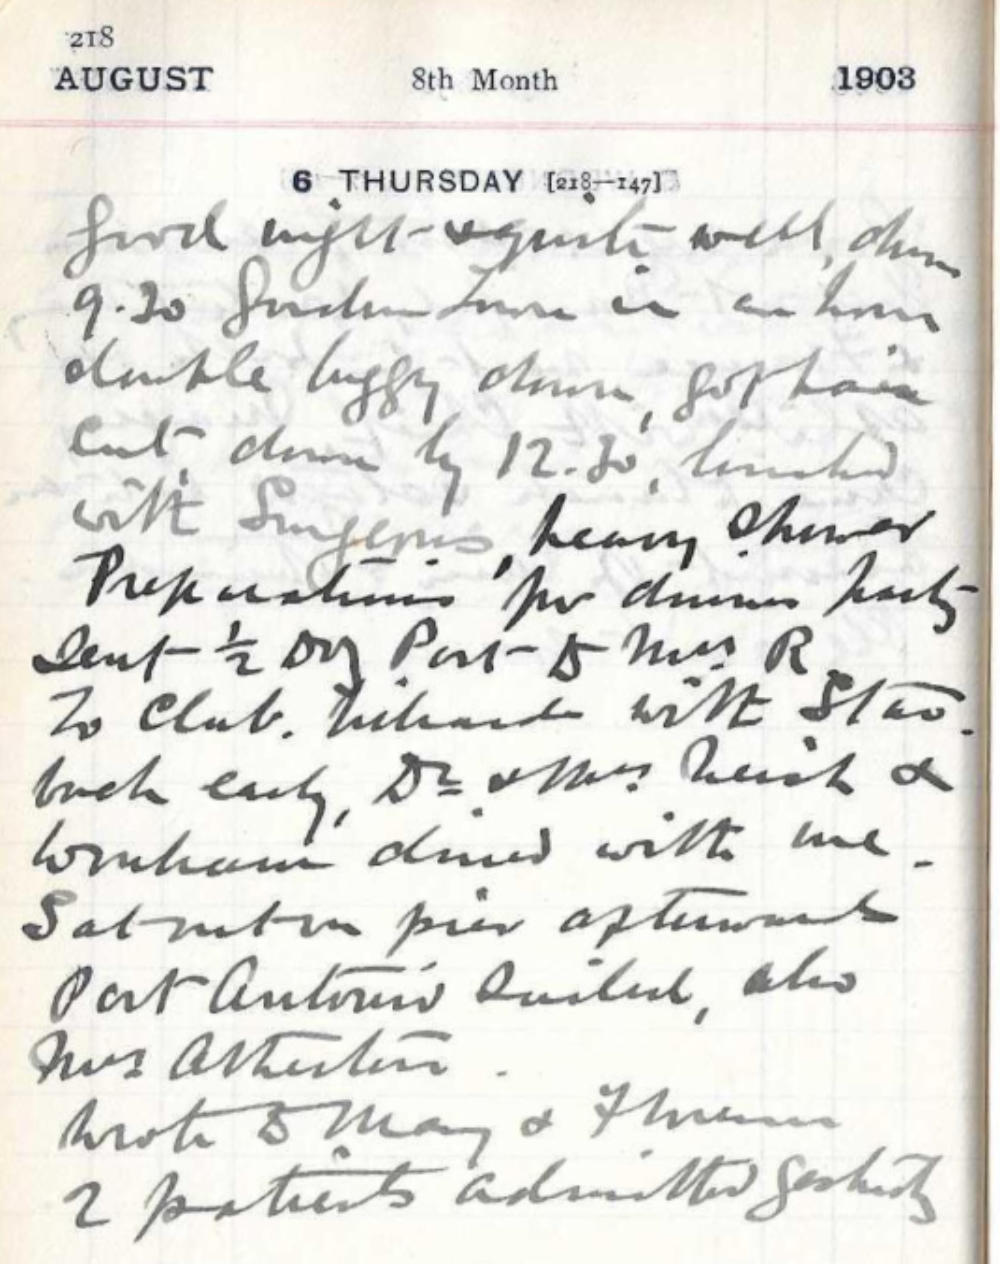 218
AUGUST 8th Month 1903
6 THURSDAY [218—147]
Good night & quite well, down
9.30 Gordon Town in an hour
double buggy down, got hair
cut, down by 12.30, lunched
with Surgeons, heavy shower
Preparations for dinner party
Sent ½ Doz Port to Mrs R
To Club. with
back early, Dr & Mrs Neish &
dined with me -
Sat out on pier afterwards
Port Antonio Sailed, also
Mrs Atherton.
Wrote to May & Florence
2 patients admitted yesterday